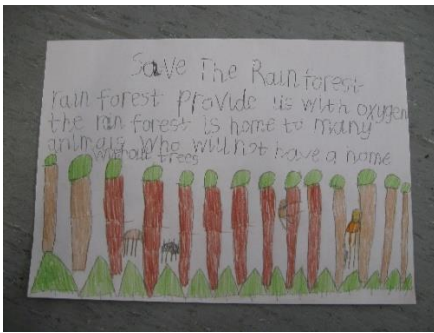 Save The Rainforest
rainforest provide us with oxygen
the rainforest is home to many
animals who will not have a home
without trees